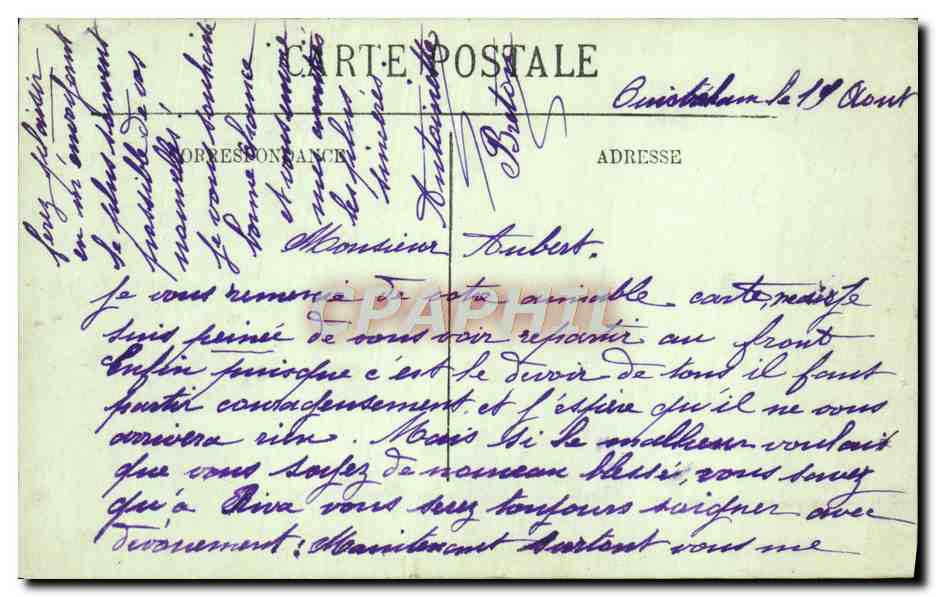 CARTE POSTALE
CORRESPONDANCE
ADRESSE
Ouistreham le 19 Aout
Monsieur Aubert.
Je vous remercie de votre aimable carte, mais je
suis peinée de vous voir repartir au front
Enfin puisque c'est le devoir de tous il faut
partir courageusement, et j'éspère qu'il ne vous
arrivera rien. Mais si le malheur voulait
que vous soyez de nouveau blessé, vous savez
qu'à Riva vous serez toujours soigner avec
dévouement; Maintenant surtout vous me
ferez plaisir
en m'envoyant
le plus souvent
possible de vos
nouvelles.
Je vous souhaite
bonne chance
et
mes amitiés
les plus
sincères.
Antoinette
Breton
CPAPHIL